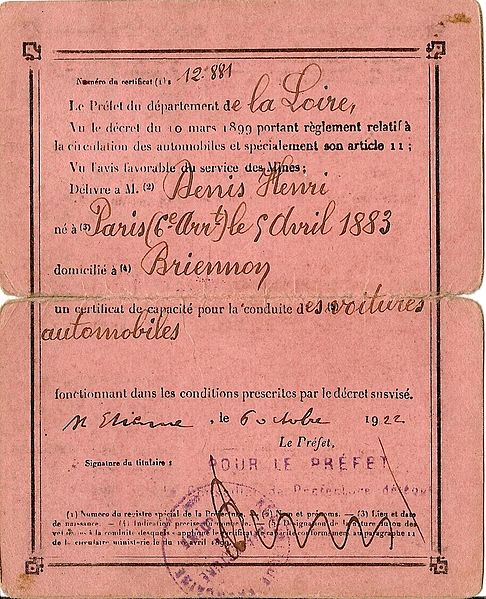 Numéro du certificat (1) : 12.881
Le Préfet du département de la Loire,
Vu le décret du 10 mars 1899 portant règlement relatif à
la circulation des automobiles et spécialement son article 11 ;
Vu l'avis favorable du service des Mines ;
Délivre à M. (2) Denis Henri
né à (3) Paris (6e Arrt) le 5 Avril 1883
domicilié à (4) Briennon
un certificat de capacité pour la conduite des voitures
automobiles
fonctionnant dans les conditions prescrites par le décret susvisé.
St Etienne, le 6 octobre 1922
Le Préfet,
Signature du titulaire :
POUR LE PRÉFET
de Préfecture
(1) Numéro du registre spécial de la Préfecture. — (2) Nom et prénoms. — (3) Lieu et date
de naissance. — (4) Indication précise — (5) Désignation de la nature du ou des
à la conduite desquels s'applique le certificat de capacité conformément au paragraphe 11
de la circulaire ministérielle du 10 avril 1899.